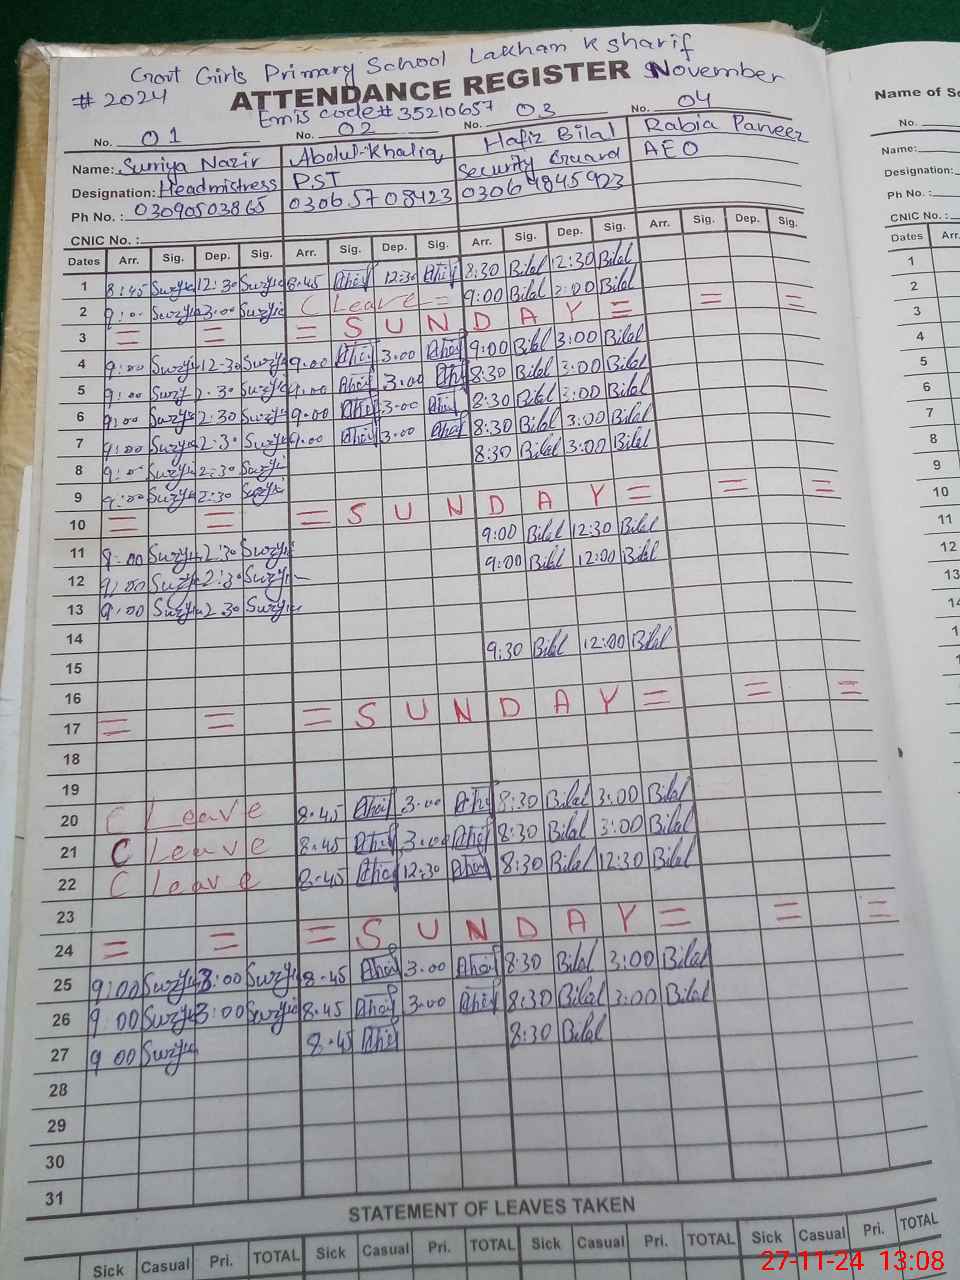 Govt Girls Primary School Lakhan Ksharif
# 2024 ATTENDANCE REGISTER November
Emis code# 35210657
No. 01 No. 02 No. 03 No. 04
Name: Surriya Nazir Abdul-Khaliq Hafiz Bilal Rabia Parveez
Designation: Headmistress PST Security Guard AEO
Ph No.: 03090503865 03065708423 03069845923
CNIC No.:
Dates Arr. Sig. Dep. Sig. Arr. Sig. Dep. Sig. Arr. Sig. Dep. Sig. Arr. Sig. Dep. Sig.
1 8:45 12:30 8.45 12:30 8:30 Bilal 12:30 Bilal
2 9:00 3:00 C Leave = 9:00 Bilal 2:00 Bilal
3 = = = S U N D A Y = = =
4 9:00 12-30 9.00 3.00 9:00 Bilal 3:00 Bilal
5 9:00 2:30 9.00 3.00 8:30 Bilal 3:00 Bilal
6 9:00 2:30 9.00 3.00 8:30 Bilal 3:00 Bilal
7 9:00 2:30 9.00 3.00 8:30 Bilal 3:00 Bilal
8 9:00 2:30 8:30 Bilal 3:00 Bilal
9 9:00 2:30
10 = = = S U N D A Y = = =
11 9:00 2:30 9:00 Bilal 12:30 Bilal
12 9:00 2:30 9:00 Bilal 12:00 Bilal
13 9:00 2:30
14
15 9:30 Bilal 12:00 Bilal
16
17 = = = S U N D A Y = = =
18
19
20 C Leave 8.45 3.00 8:30 Bilal 3:00 Bilal
21 C Leave 8.45 3.00 8:30 Bilal 3:00 Bilal
22 C Leave 8.45 12:30 8:30 Bilal 12:30 Bilal
23
24 = = = S U N D A Y = = =
25 9:00 3:00 8.45 3.00 8:30 Bilal 3:00 Bilal
26 9:00 3:00 8.45 3.00 8:30 Bilal 3:00 Bilal
27 9:00 8.45 8:30 Bilal
28
29
30
31
STATEMENT OF LEAVES TAKEN
Sick Casual Pri. TOTAL Sick Casual Pri. TOTAL Sick Casual Pri. TOTAL Sick Casual Pri. TOTAL
Name of
No.
Name:
Designation:
Ph No.:
CNIC No.:
Dates Arr.
1
2
3
4
5
6
7
8
9
10
11
12
13
14
27-11-24 13:08